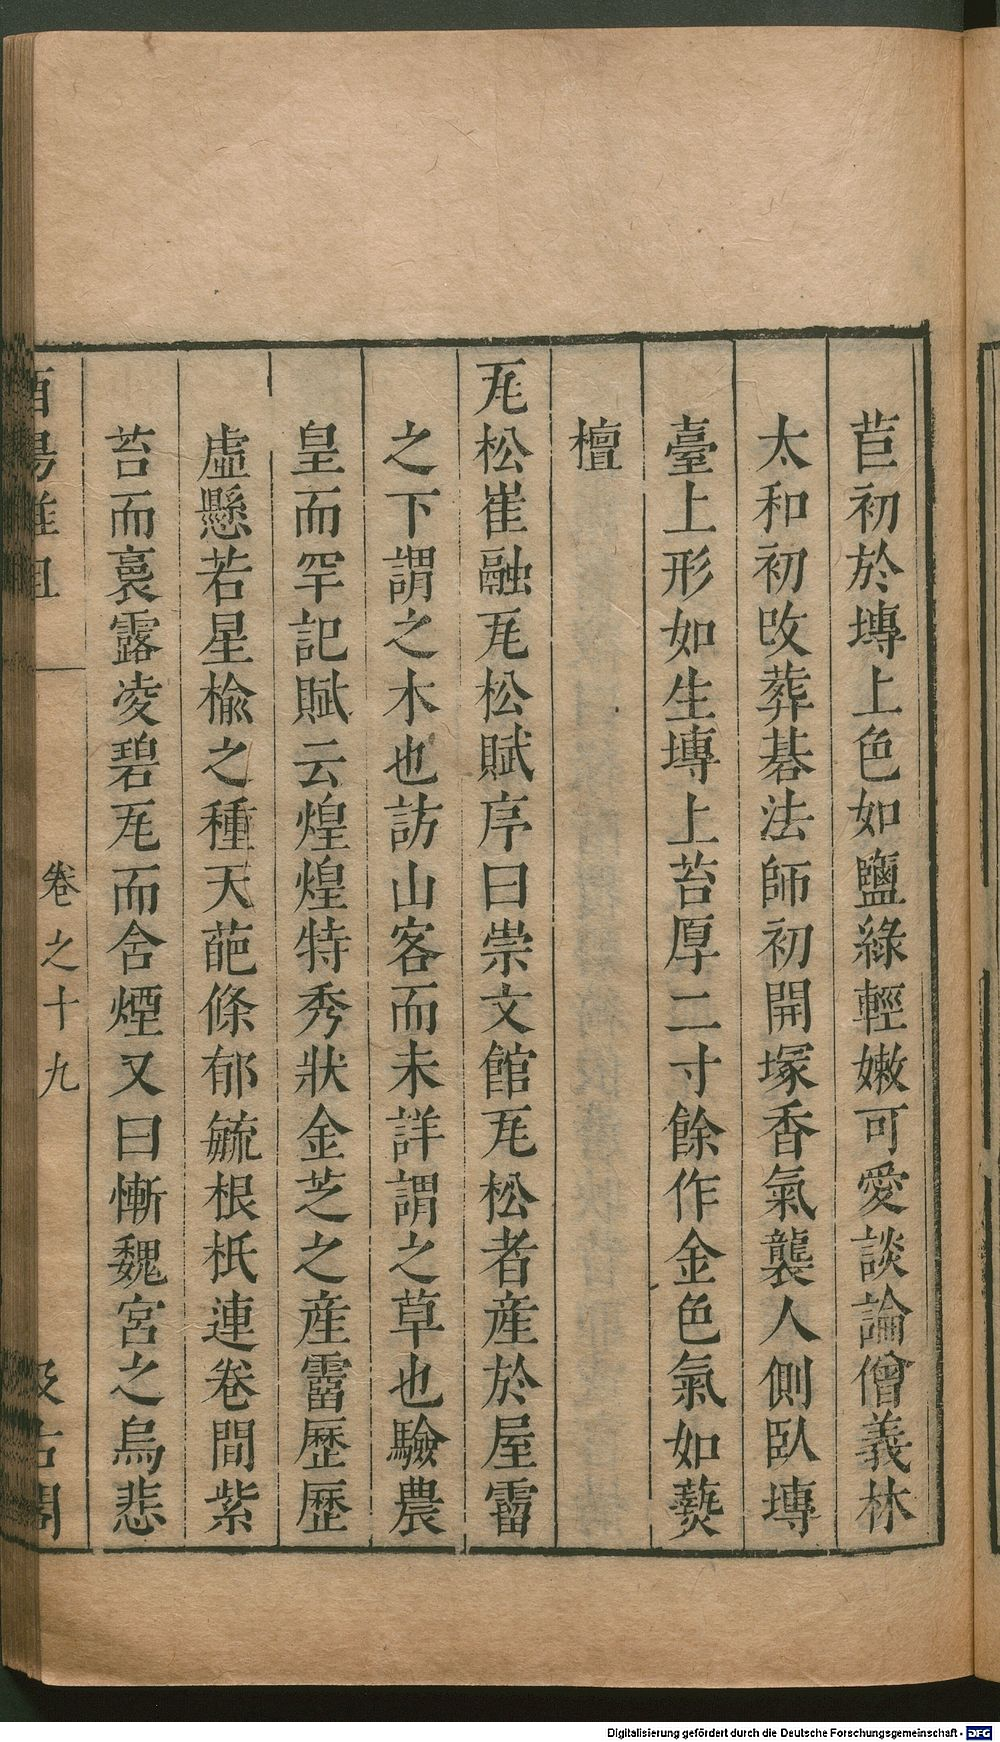 苣初於塼上色如鹽綠輕嫩可愛談論僧義林
太和初改葬碁法師初開塚香氣襲人側臥塼
臺上形如生塼上苔厚二寸餘作金色氣如爇
檀
瓦松崔融瓦松賦序曰崇文館瓦松者產於屋霤
之下謂之木也訪山客而未詳謂之草也驗農
皇而罕記賦云煌煌特秀狀金芝之產霤歷歷
虛懸若星楡之種天葩條郁毓根柢連卷間紫
苔而裛露凌碧瓦而含煙又曰慚魏宮之烏悲
酉陽雜俎 卷之十九 汲古閣
Digitalisierung gefördert durch die Deutsche Forschungsgemeinschaft - DFG